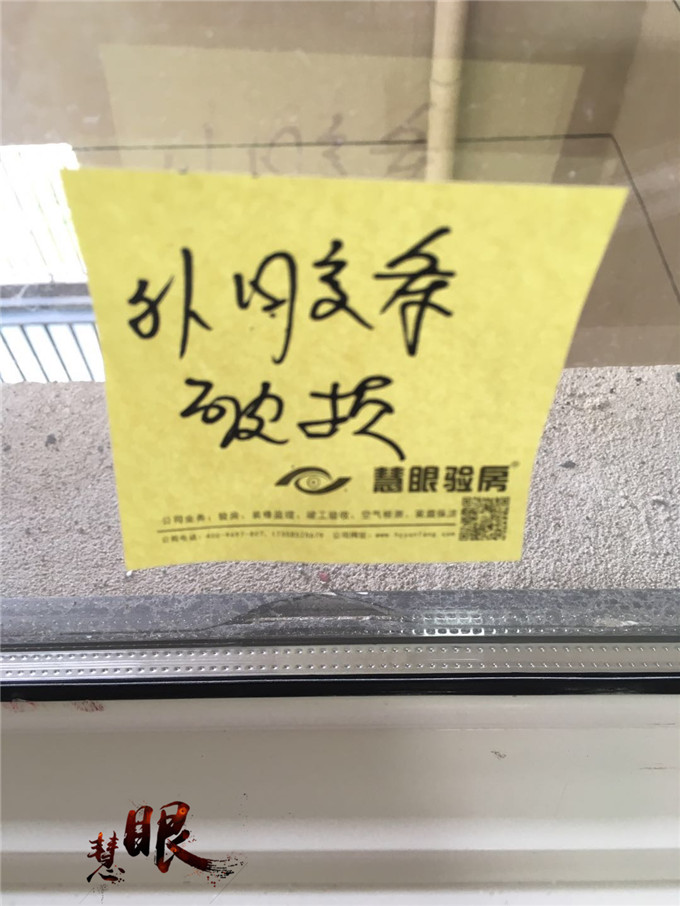 外胶条
破损
慧眼验房®
公司业务：验房、装修监理、竣工验收、空气检测、家庭保洁
公司电话： 公司网址：www.hyyanfang.com
慧眼